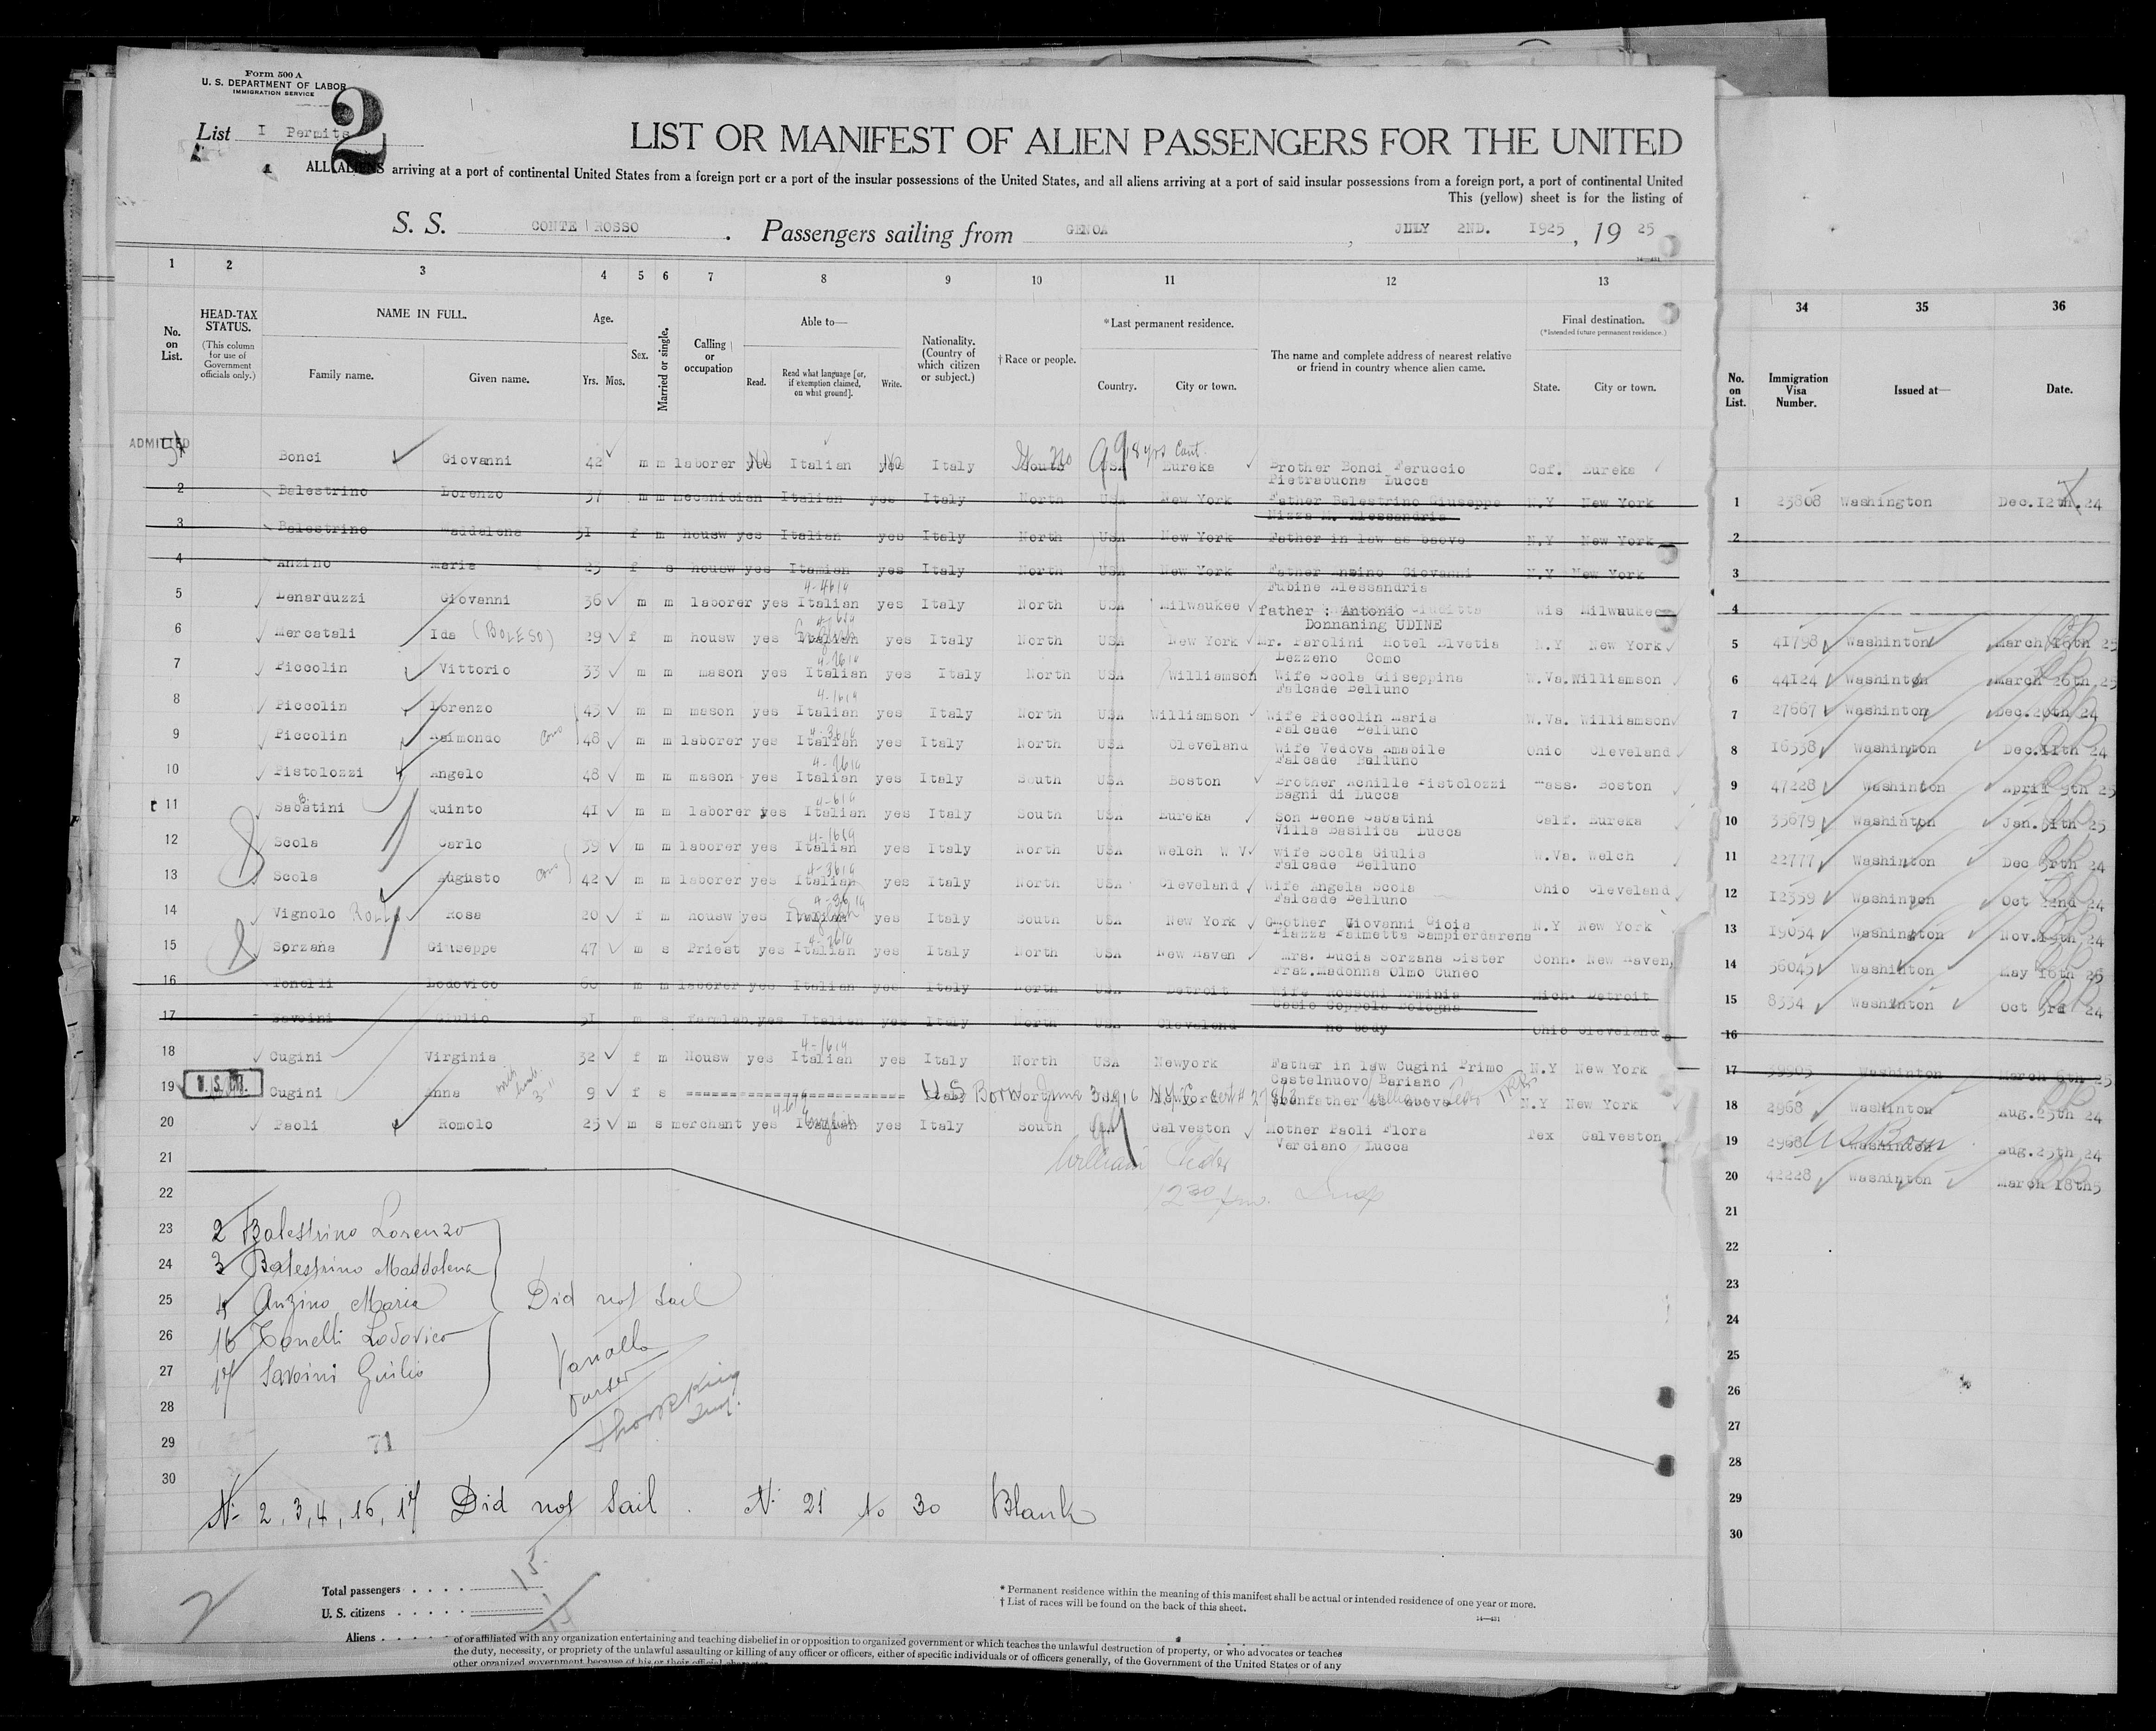 Form 500 A
U. S. DEPARTMENT OF LABOR
IMMIGRATION SERVICE
2
List I Permits
LIST OR MANIFEST OF ALIEN PASSENGERS FOR THE UNITED
ALL ALIENS arriving at a port of continental United States from a foreign port or a port of the insular possessions of the United States, and all aliens arriving at a port of said insular possessions from a foreign port, a port of continental United
This (yellow) sheet is for the listing of
S. S. CONTE ROSSO . Passengers sailing from GENOA , JULY 2ND. 1925 , 19 25
1 2 3 4 5 6 7 8 9 10 11 12 13
34 35 36
No. on List.
HEAD-TAX STATUS.
(This column for use of Government officials only.)
NAME IN FULL.
Family name.
Given name.
Age.
Yrs. Mos.
Sex.
Married or single.
Calling or occupation
Able to—
Read.
Read what language [or, if exemption claimed, on what ground].
Write.
Nationality. (Country of which citizen or subject.)
† Race or people.
* Last permanent residence.
Country. City or town.
The name and complete address of nearest relative or friend in country whence alien came.
Final destination.
(* Intended future permanent residence.)
State. City or town.
No. on List.
Immigration Visa Number.
Issued at—
Date.
ADMITTED
Bonci Giovanni 42 m m laborer yes No Italian yes No Italy South USA Eureka Brother Bonci Feruccio Caf. Eureka
8 yrs Cont.
Pietrabuona Lucca
2 Balestrino Lorenzo 37 m m mecanician Italian yes Italy North USA New York Father Balestrino Giuseppe N.Y New York
Nizza M. Alessandria
3 Balestrino Maddalena 31 f m housw yes Italian yes Italy North USA New York Father in law as baove N.Y New York
4 Anzino Maria 25 f s housw yes Itamian yes Italy North USA New York Father Anzino Giovanni N.Y New York
Fubine Alessandria
5 Lenarduzzi Giovanni 36 m m laborer yes Italian yes Italy North USA Milwaukee father : Antonio Wis Milwaukee
Donnaning UDINE
6 Mercatali Ida (BOLESO) 29 f m housw yes Italian English yes Italy North USA New York Mr. Parolini Hotel Elvetia N.Y New York
Lezzeno Como
7 Piccolin Vittorio 33 m m mason yes Italian yes Italy North USA Williamson Wife Scola Giiseppina W.Va. Williamson
Falcade Belluno
8 Piccolin Lorenzo 45 m m mason yes Italian yes Italy North USA Williamson Wife Piccolin Maria W.Va. Williamson
Falcade Belluno
9 Piccolin Raimondo 48 m m laborer yes Italian yes Italy North USA Cleveland Wife Vedova Amabile Ohio Cleveland
Falcade Balluno
10 Pistolozzi Angelo 48 m m mason yes Italian yes Italy South USA Boston Brother Achille Pistolozzi Mass. Boston
Bagni di Lucca
11 Sabatini Quinto 41 m m laborer yes Italian yes Italy South USA Eureka Son Leone Sabatini Calf. Eureka
Villa Basilica Lucca
12 Scola Carlo 39 m m laborer yes Italian yes Italy North USA Welch W V Wife Scola Giulia W.Va. Welch
Falcade Belluno
13 Scola Augusto 42 m m laborer yes Italian yes Italy North USA Cleveland Wife Angela Scola Ohio Cleveland
Falcade Belluno
14 Vignolo Rosa 20 f m housw yes Italian English yes Italy South USA New York Gmother Giovanni Gioia N.Y New York
Piazza Palmetta Sampierdarena
15 Sorzana Giuseppe 47 m s Priest yes Italian yes Italy North USA New Haven Mrs. Lucia Sorzana Sister Conn. New Haven,
Fraz.Madonna Olmo Cuneo
16 Tonelli Lodovico 60 m m laborer yes Italian yes Italy North USA Detroit Wife Rossoni Erminia Mich. Detroit
Casio Coppola Bologna
17 Savoini Giulio 31 m s Farmlab. yes Italian yes Italy North USA Cleveland no body Ohio Cleveland
18 Cugini Virginia 32 f m Housw yes Italian yes Italy North USA Newyork Father in law Cugini Primo N.Y New York
Castelnuovo Bariano
19 Cugini Anna 9 f s Italy U.S. Born June 3 1916 N.Y.C. Granfather as above N.Y New York
20 Paoli Romolo 25 m s merchant yes Italian English yes Italy South USA Galveston Mother Paoli Flora Tex Galveston
Varciano Lucca
21
William Feder
12 30 pm. Insp
22
23 2 Balestrino Lorenzo
24 3 Balestrino Maddalena
25 4 Anzino Maria Did not sail
26 16 Tonelli Lodovico
27 17 Savoini Guilio
28
Purser
29 71
30
N- 2, 3, 4, 16, 17 Did not sail . N- 21 to 30 Blank
1 23808 Washington Dec.12th.24
2
3
4
5 41798 Washinton March 16th 25
6 44124 Washinton March 26th,25
7 27667 Washinton Dec.20th 24
8 16538 Washinton Dec.11th 24
9 47228 Washinton April 9th 25
10 35679 Washinton Jan.31th 25
11 22777 Washinton Dec 3rth 24
12 12359 Washinton Oct 22nd 24
13 19054 Washington Nov.14th,24
14 56045 Washinton May 16th 25
15 8334 Washinton Oct 3rd 24
16
17 39905 Washinton March 6th 25
18 2968 Washinton Aug.25th 24
19 2968 Washinton US Born Aug.25th 24
20 42228 Washinton March 18th5
21
22
23
24
25
26
27
28
29
30
Total passengers . . . . 15
U. S. citizens . . . . . 1
Aliens . . . . . 14
* Permanent residence within the meaning of this manifest shall be actual or intended residence of one year or more.
† List of races will be found on the back of this sheet.
14—431
of or affiliated with any organization entertaining and teaching disbelief in or opposition to organized government or which teaches the unlawful destruction of property, or who advocates or teaches
the duty, necessity, or propriety of the unlawful assaulting or killing of any officer or officers, either of specific individuals or of officers generally, of the Government of the United States or of any
other organized government because of his or their official character